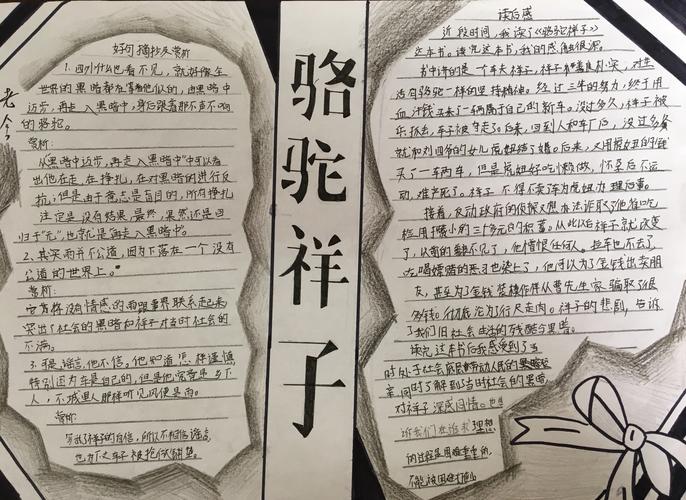 好句摘抄及赏析
1.四外什么也看不见,就好像全
世界的黑暗都在等着他似的,由黑暗中
迈步,再走入黑暗中,身后跟着那不声不响
的骆驼。
赏析:
从黑暗中迈步,再走入黑暗中"中可以看
出他在走,在挣扎,在对黑暗的进行反
抗,但是由于意志是盲目的,所有挣扎
注定是没有结果,最终,果然还是回
归于"无",也就是再走入黑暗中。
2.其实雨并不公道,因为下落在一个没有
公道的世界上。
赏析:
它为将没有情感的雨跟世界联系起来
突出了社会的黑暗和祥子对当时社会的
不满。
3.不是谣言,他不信。他知道怎样谨慎
特别因为车是自己的,但是他究竟是乡下
人,不城里人那样听见风便是雨。
赏析:
写出了祥子的自信,所以不相信谣言,
老舍
骆驼祥子
读后感
近段时间,我读了《骆驼祥子》
这本书。读完这本书,我的感触很深。
书中讲的是一个车夫祥子,祥子善良朴实,对生
活有骆驼一样的坚持精神。经过三年的努力,终于用
血汗钱买来了一辆属于自己的新车。没过多久,祥子被
乱抓去,车子被夺走了。后来,回到人和车厂后,没过多久
就和刘四爷的女儿虎妞结了婚。后来,又用虎妞的钱
买了一车两车,但是虎妞好吃懒做,怀孕后不运
动,难产死了。祥子不得不卖车为虎妞办理后事。
接着,反动政府的侦探又想办法诈取了他省吃
从此以后祥子就改变
了,以前的
不见了,他憎恨任何人。拉车也不去了
吃喝嫖赌的恶习也染上了,他可以为了金钱出卖朋
友,甚至为了金钱
曹先生家骗取了很
多钱
彻底沦为了行尸走肉。祥子的悲剧,告诉
了我们旧社会生活的残酷与黑暗。
读完这本书后我感受到了
时处于社会底层劳动人民的
同时了解到当时社会的黑暗
对祥子深感同情。也
诉我们在追求理想
的过程是困难重重的,